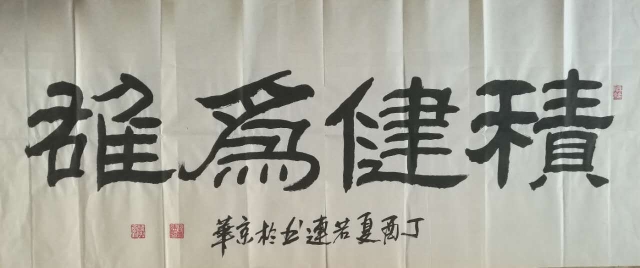 積健為雄
丁酉夏若連书於京華